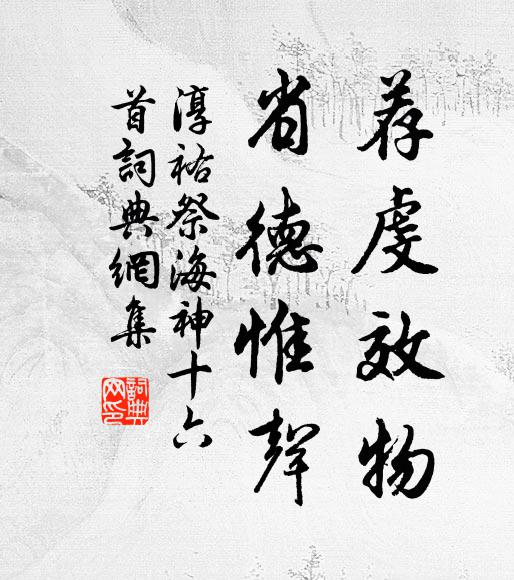 荐虔效物
省德惟聲
淳祐祭海神十六
首詞典網集
詞典
网印